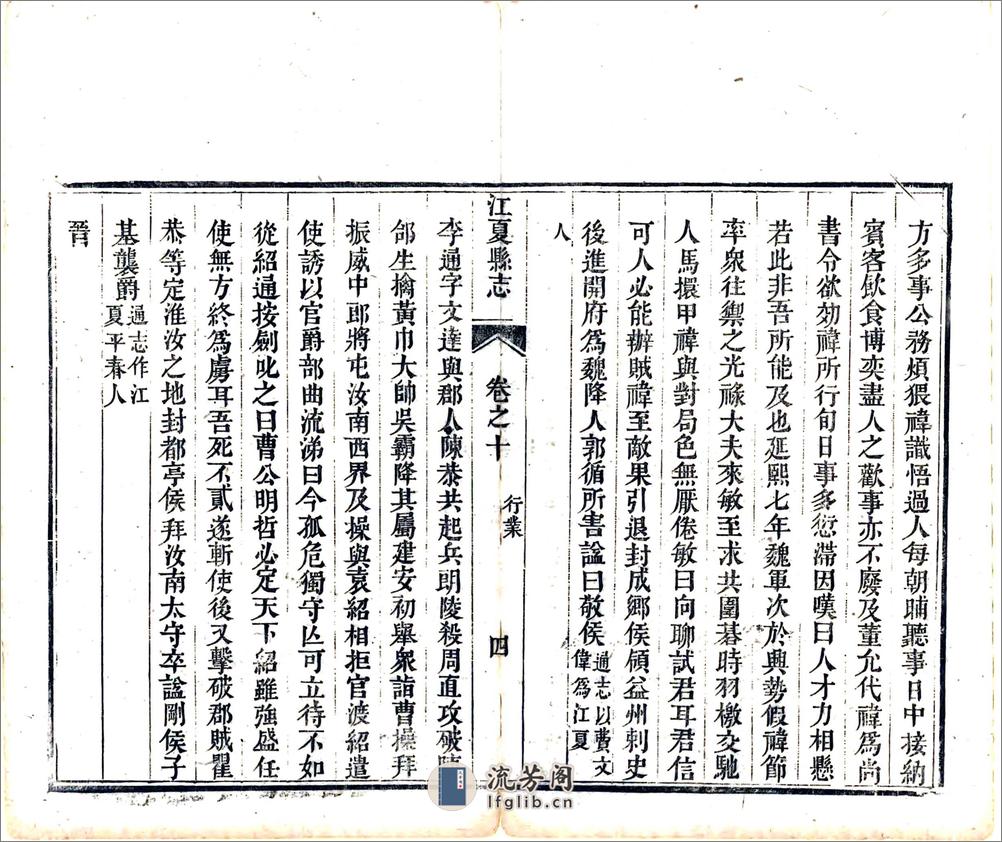 方多事公務煩猥禕識悟過人每朝晡聽事日中接納
賓客飲食博奕盡人之歡事亦不廢及董允代禕爲尚
書令欲効禕所行旬日事多愆滯因嘆曰人才力相懸
若此非吾所能及也延熙七年魏軍次於興勢假禕節
率衆往禦之光祿大夫來敏至求共圍碁時羽檄交馳
人馬擐甲禕與對局色無厭倦敏曰向聊試君耳君信
可人必能辦賊禕至敵果引退封成鄉侯領益州刺史
後進開府爲魏降人郭循所害諡曰敬侯通志以費文
偉爲江夏
人
江夏縣志
卷之十
行業
四
李通字文達與郡人陳恭共起兵朗陵殺周直攻破陳
郃生擒黃巾大帥吳霸降其屬建安初舉衆詣曹操拜
振威中郎將屯汝南西界及操與袁紹相拒官渡紹遣
使誘以官爵部曲流涕曰今孤危獨守亾可立待不如
從紹通按劍叱之曰曹公明哲必定天下紹雖強盛任
使無方終爲虜耳吾死不貳遂斬使後又擊破郡賊瞿
恭等定淮汝之地封都亭侯拜汝南太守卒諡剛侯子
基襲爵通志作江
夏平春人
晉
流芳阁
lfglib.cn